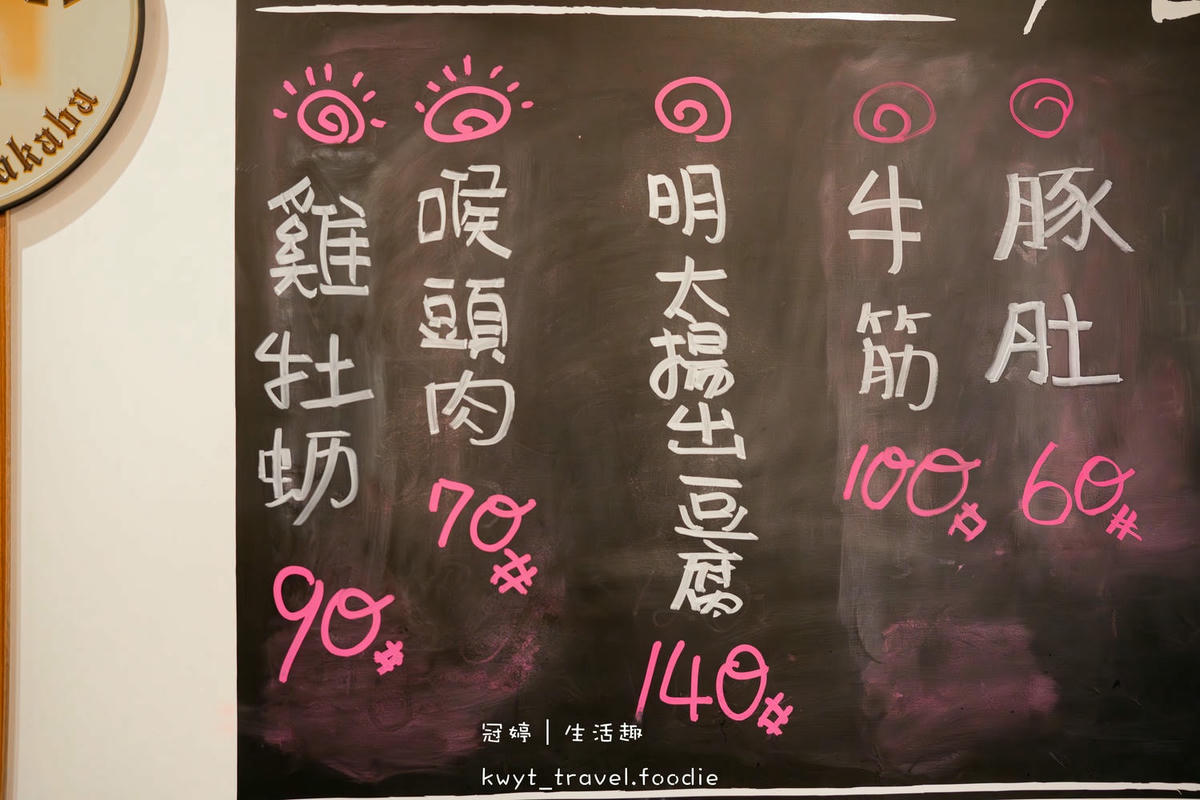 豚肚
60#
牛筋
100#
明太揚出豆腐
140#
喉頭肉
70#
雞牡蛎
90#
冠婷 | 生活趣
kwyt_travel.foodie